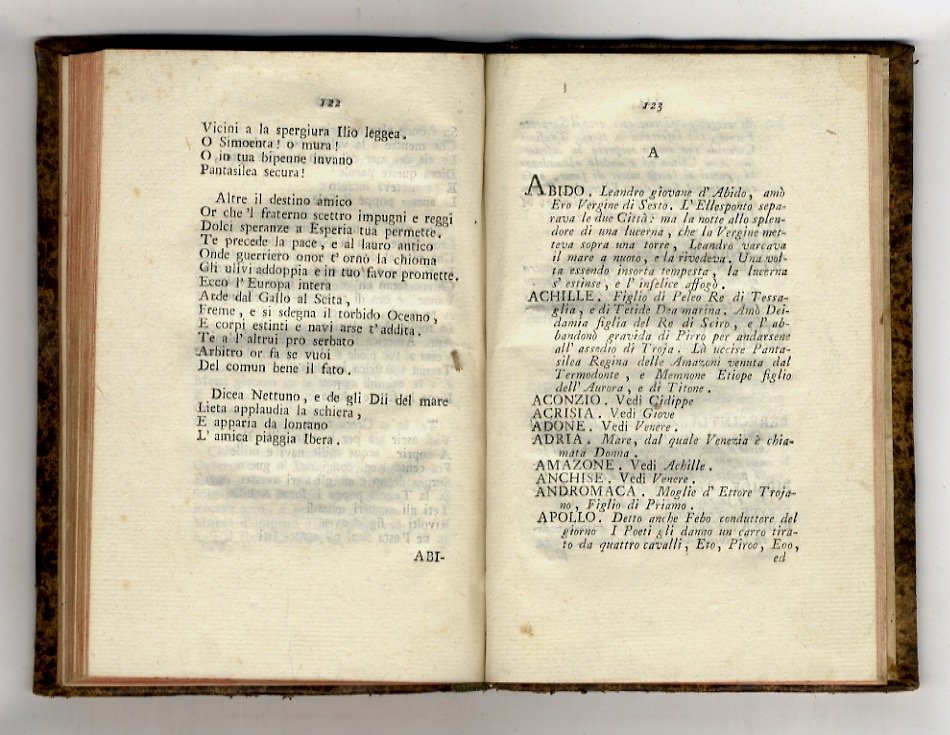 122
Vicini a la spergiura Ilio leggea.
O Simoenta! o mura!
O in tua bipenne invano
Pantasilea secura!
Altre il destino amico
Or che 'l fraterno scettro impugni e reggi
Dolci speranze a Esperia tua permette.
Te precede la pace, e al lauro antico
Onde guerriero onor t'ornò la chioma
Gli ulivi addoppia e in tuo favor promette.
Ecco l'Europa intera
Arde dal Gallo al Scita,
Freme, e si sdegna il torbido Oceano,
E corpi estinti e navi arse t'addita.
Te a l'altrui pro serbato
Arbitro or fa se vuoi
Del comun bene il fato.
Dicea Nettuno, e de gli Dii del mare
Lieta applaudia la schiera,
E apparia da lontano
L'amica piaggia Ibera.
ABI-
123
A
ABIDO. Leandro giovane d'Abido, amò
Ero Vergine di Sesto. L'Ellesponto sepa-
rava le due Città: ma la notte allo splen-
dore di una lucerna, che la Vergine met-
teva sopra una torre, Leandro varcava
il mare a nuoto, e la rivedeva. Una vol-
ta essendo insorta tempesta, la lucerna
s'estinse, e l'infelice affogò.
ACHILLE. Figlio di Peleo Re di Tessa-
glia, e di Tetide Dea marina. Amò Dei-
damia figlia del Re di Sciro, e l'ab-
bandonò gravida di Pirro per andarsene
all'assedio di Troja. Là uccise Panta-
silea Regina delle Amazoni venuta dal
Termodonte, e Memnone Etiope figlio
dell'Aurora, e di Titone.
ACONZIO. Vedi Cidippe
ACRISIA. Vedi Giove
ADONE. Vedi Venere.
ADRIA. Mare, dal quale Venezia è chia-
mata Donna.
AMAZONE. Vedi Achille.
ANCHISE. Vedi Venere.
ANDROMACA. Moglie d'Ettore Troja-
no, Figlio di Priamo.
APOLLO. Detto anche Febo conduttore del
giorno I Poeti gli danno un carro tira-
to da quattro cavalli, Eto, Piroo, Eoo,
ed